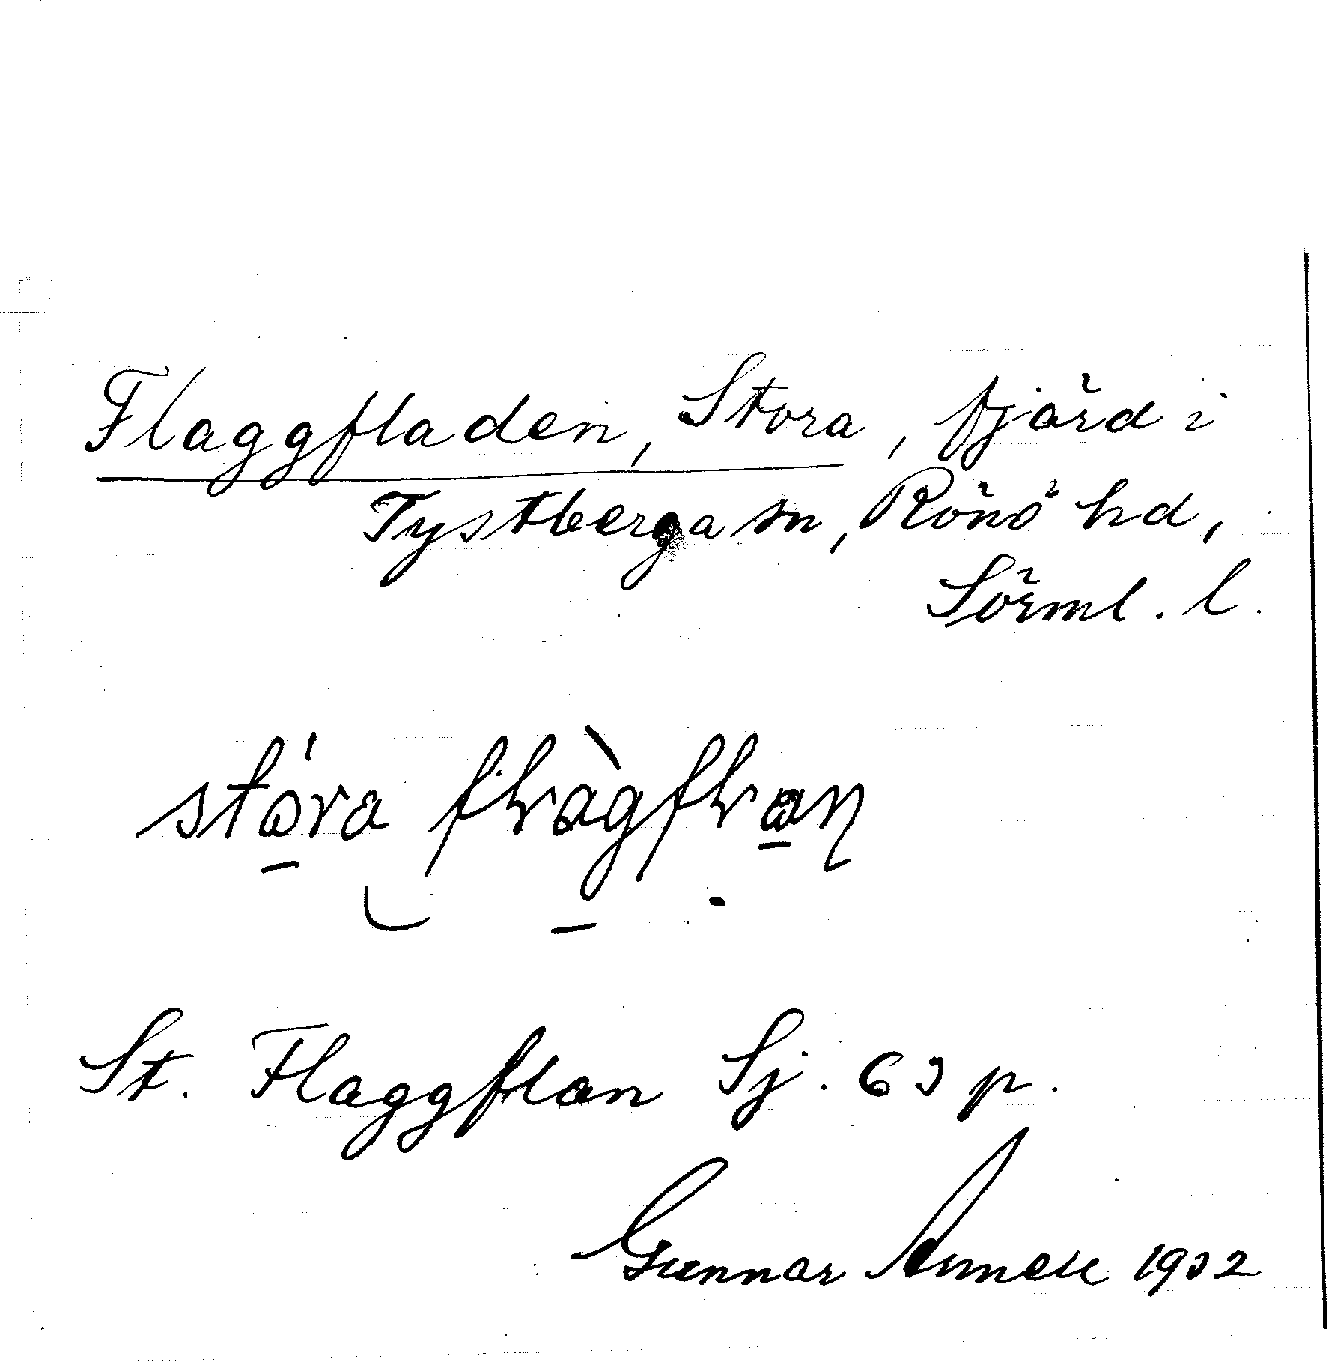 Flaggfladen, Stora, fjärd i
Tystberga sn, Rönö hd,
Sörml. l.
stora
St. Flaggflan Sj. 63 p.
Gunnar 1932